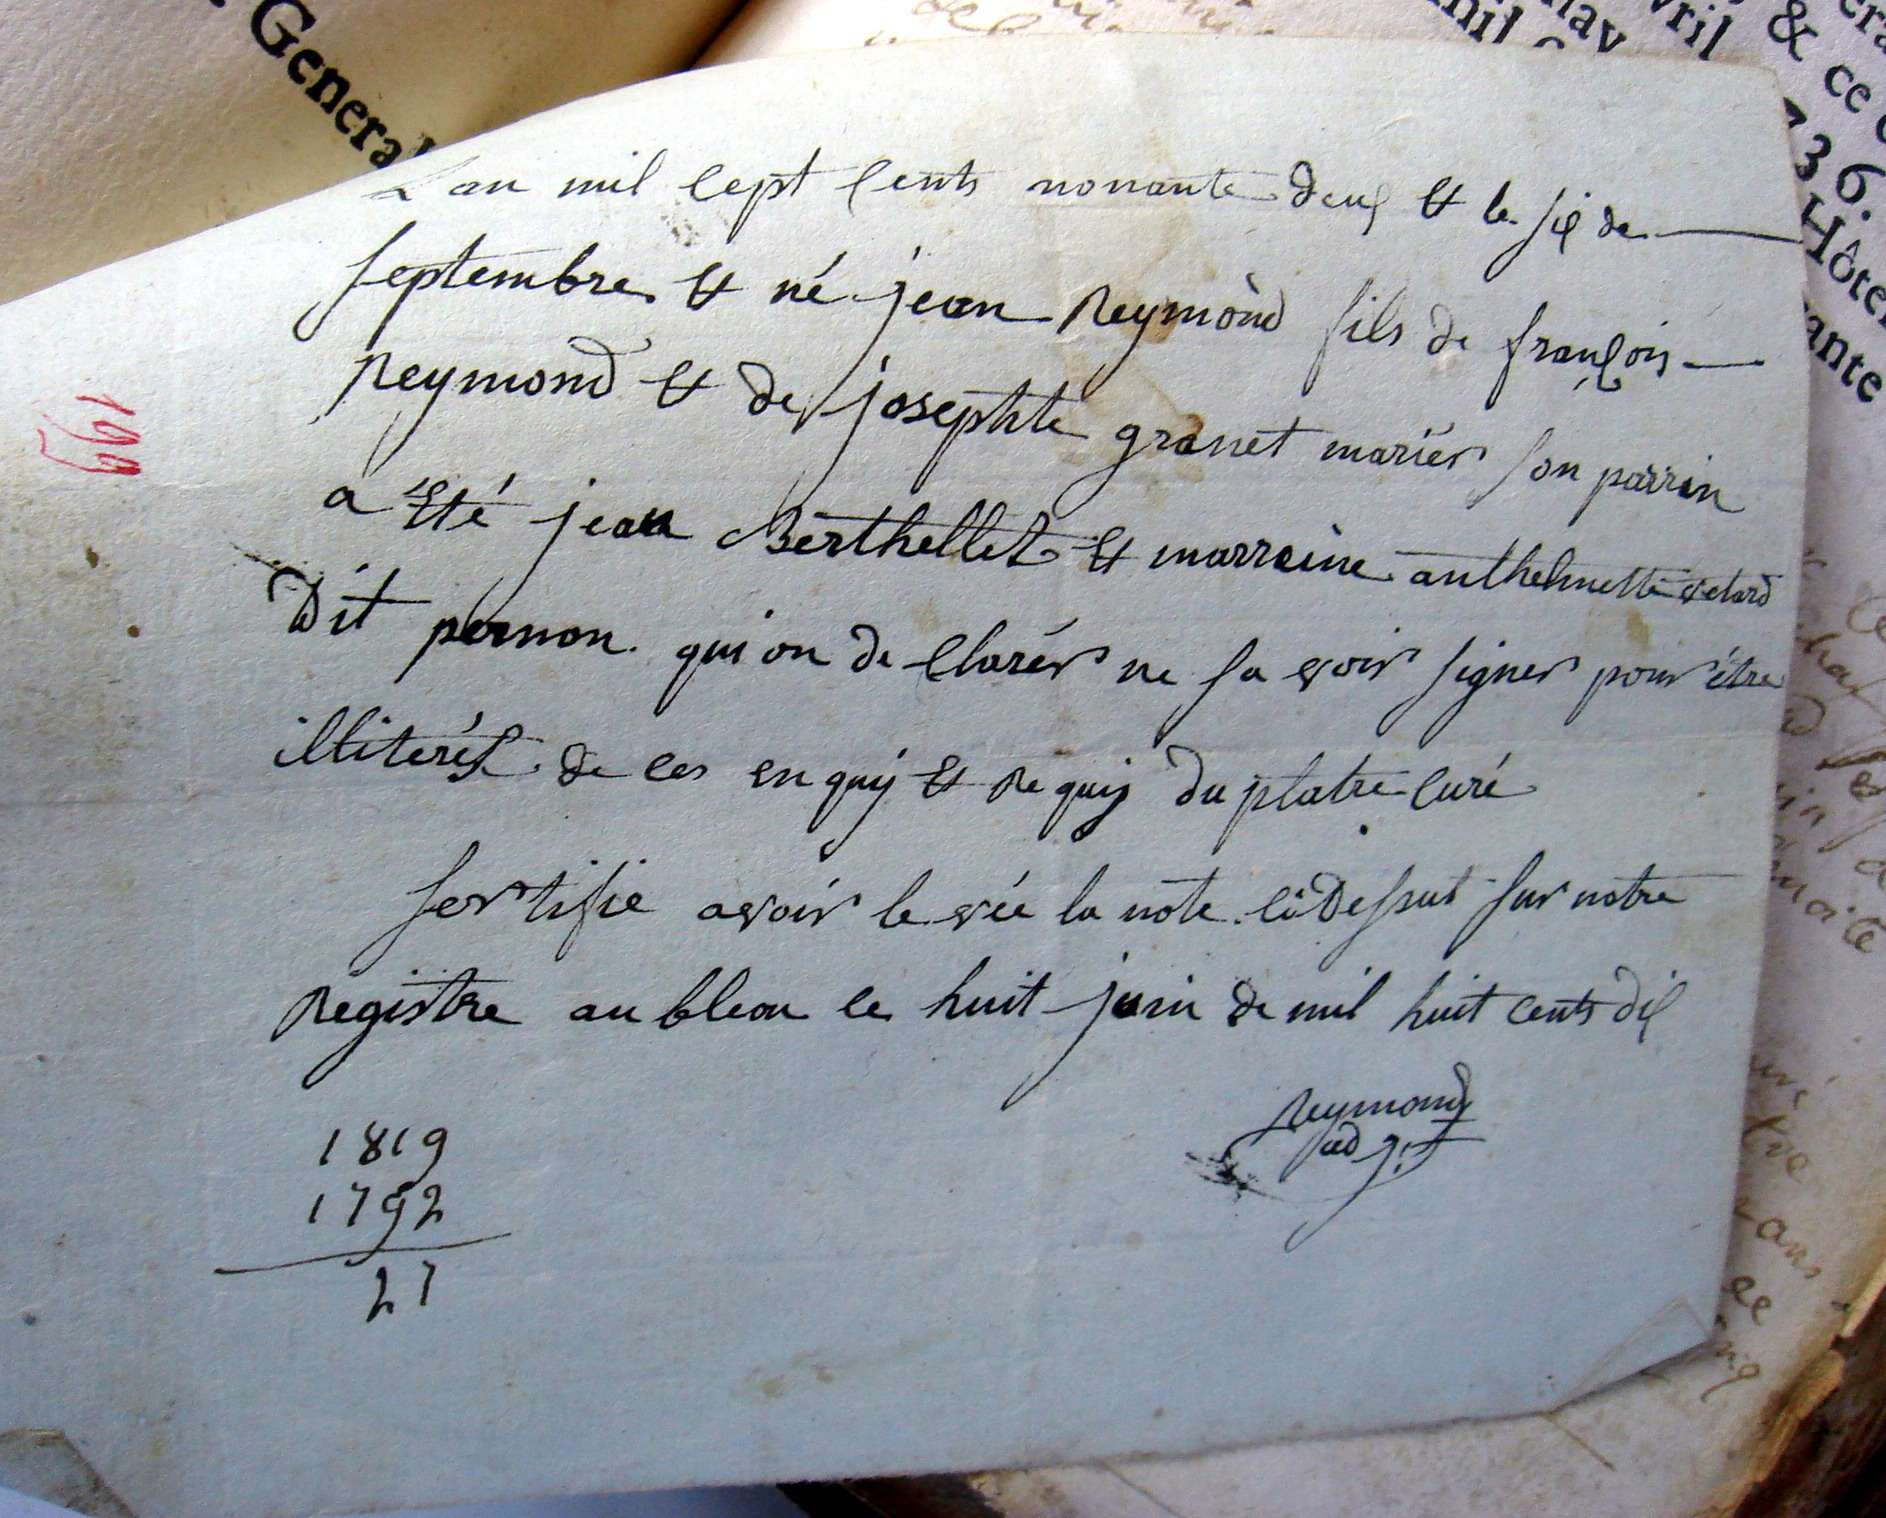 General
L'an mil cept cents nonante deux & le six de
septembre & né jean Reymond fils de françois
Reymond & de josephte granet mariés son parrin
a été jean Berthellet & marreine anthelmette
Dit pernon qui on de clarér ne sa voir signer pour être
illiterés de ces enquij & Requij du platre curé
sertifie avoir le vée la note ci Dessus sur notre
Registre au bleou ce huit juin de mil huit cents dix
Reymond
adjt
1819
1792
27
199
vril
& ce
36.
Hôte